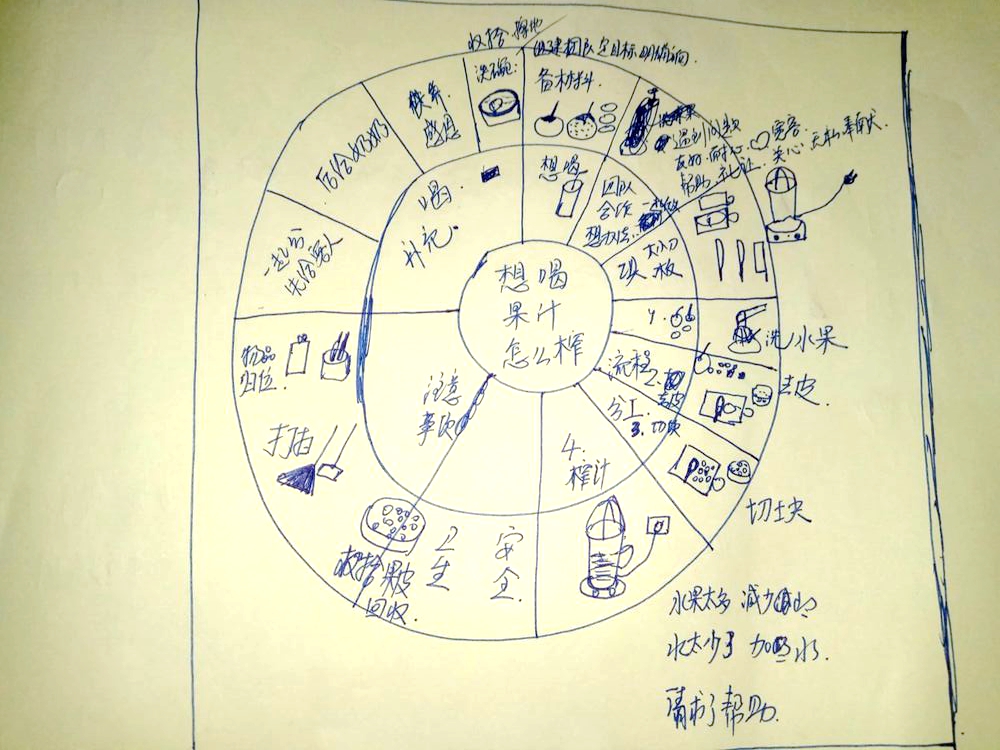 收拾
组建团队定目标明确
洗碗
备材料
后给奶奶
感恩
遇到问题
宽容
友好 耐心
关心 无私奉献
帮助
想喝
喝
团队
合作
想办法
一起分
先给客人
大小刀
板
想喝
果汁
怎么榨
1.
洗水果
流程 2.
去皮
去皮
物品
归位
注意
事项
分工
3. 切块
打扫
4.
榨汁
切土夹
安
全
卫
生
收拾果皮
回收
水果太多 减少
水太少了 加水
请求了帮助